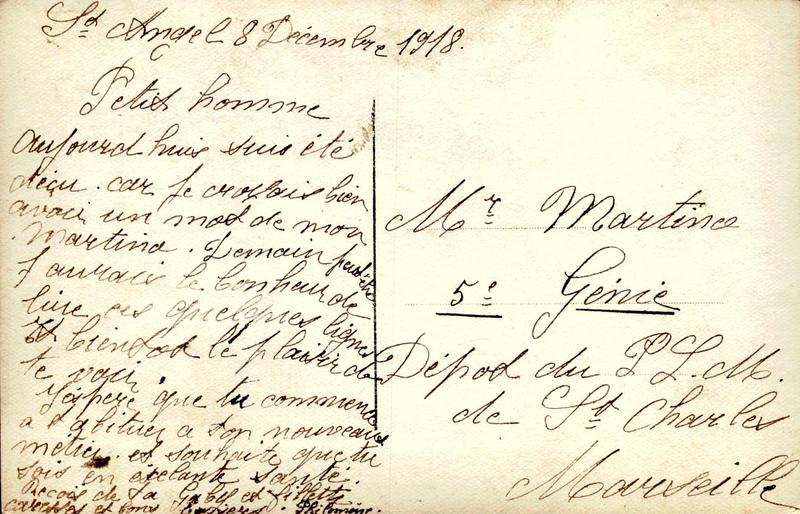 St Angel 8 Décembre 1918.
Petit homme
aujourd huis suis été
déçu. car je croyais bien
avoir un mot de mon
Martino. Demain peut être
j aurais le bonheur de
lire ces quelques lignes
et bientot le plaisir de
te voir
J'éspère que tu commence
a t abituer a ton nouveau
métier. et souhaite que tu
sois en exelante santé.
Recois de ta et
caresses et bons Philomène.
Mr Martino
5e Génie
Dépot du P L. M.
de St Charles
Marseille